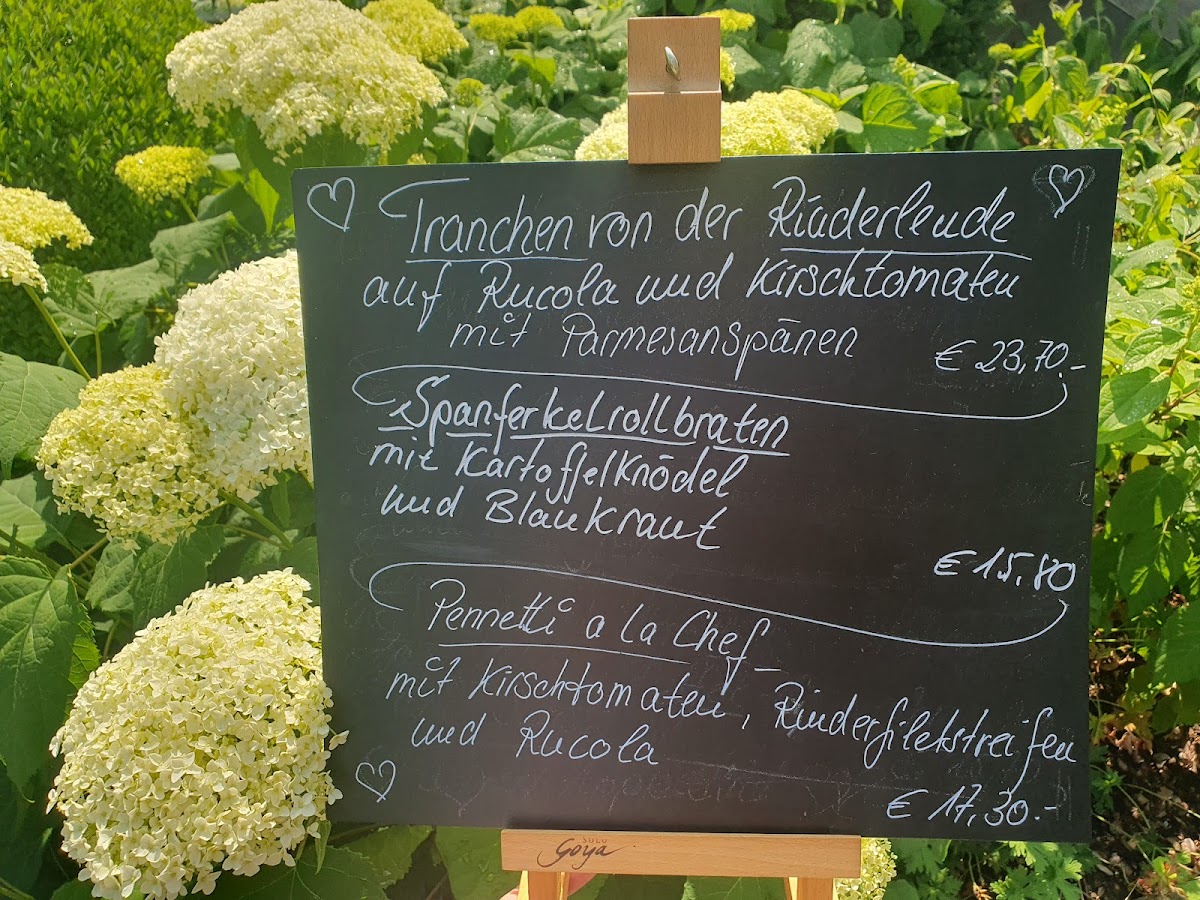 Tranchen von der Rinderlende
auf Rucola und Kirschtomaten
mit Parmesanspänen
€ 23,70.-
Spanferkelrollbraten
mit Kartoffelknödel
und Blaukraut
€ 15,80
Pennetti a la Chef
mit Kirschtomaten, Rinderfiletstreifen
und Rucola
€ 17,30.-
SOLO
Goya